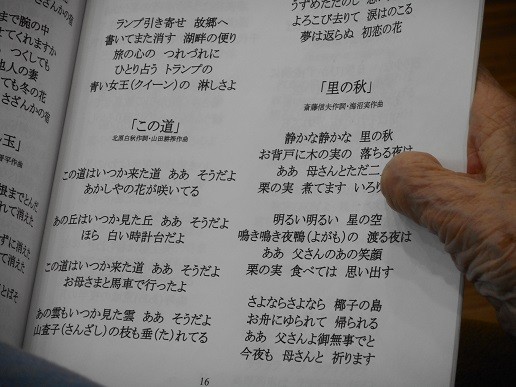 まで腕の中
せてくれますか
つくしても
他人の妻
ても冬の花
さざんかの宿
ランプ引き寄せ 故郷へ
書いてまた消す 湖畔の便り
旅の心の つれづれに
ひとり占う トランプの
青い女王(クイーン)の 淋しさよ
「この道」
北原白秋作詞・山田耕筰作曲
この道はいつか来た道 ああ そうだよ
あかしやの花が咲いてる
あの丘はいつか見た丘 ああ そうだよ
ほら 白い時計台だよ
この道はいつか来た道 ああ そうだよ
お母さまと馬車で行ったよ
あの雲もいつか見た雲 ああ そうだよ
山査子(さんざし)の枝も垂(た)れてる
よろこび去りて 涙はのこる
夢は返らぬ 初恋の花
「里の秋」
斎藤信夫作詞・海沼実作曲
静かな静かな 里の秋
お背戸に木の実の 落ちる夜は
ああ 母さんとただ二
栗の実 煮てます いろり
明るい明るい 星の空
鳴き鳴き夜鴨(よがも)の 渡る夜は
ああ 父さんのあの笑顔
栗の実 食べては 思い出す
さよならさよなら 椰子の島
お舟にゆられて 帰られる
ああ 父さんよ御無事でと
今夜も 母さんと 祈ります
16